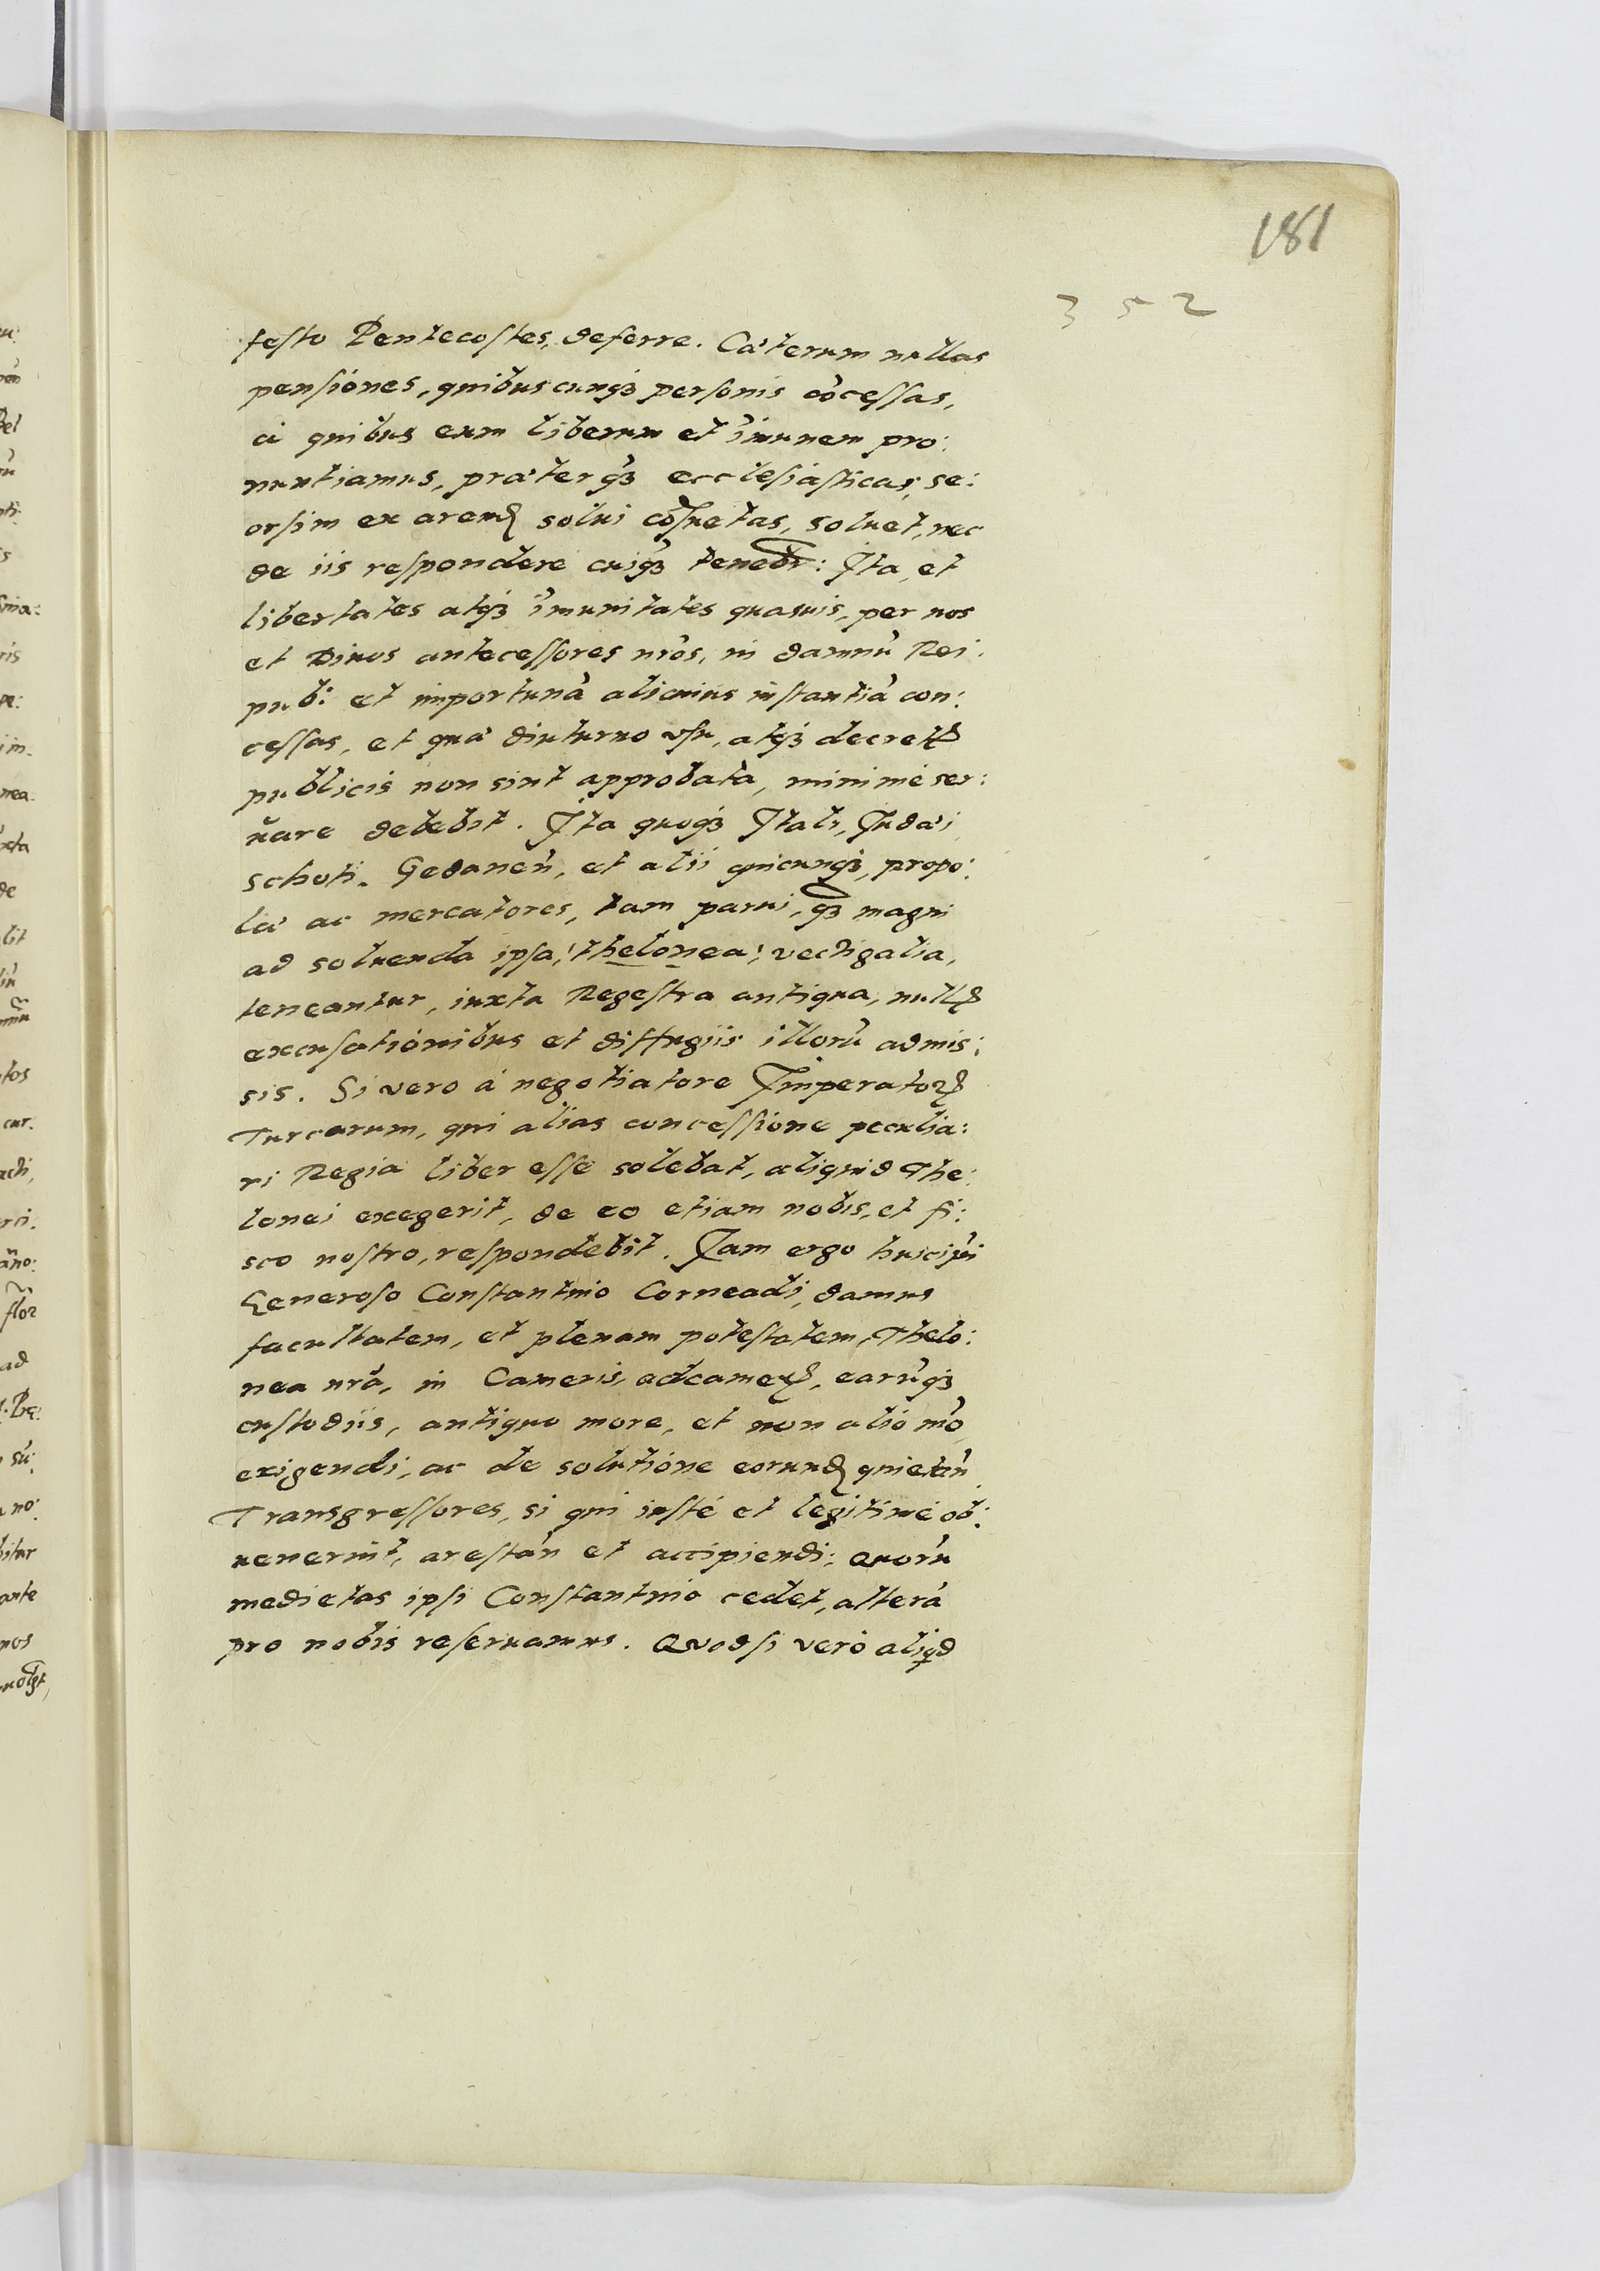 181
352
festo Pentecostes, deferre. Cæterum nullas
pensiones, quibuscunqꝫ personis cõcessas,
à quibus eum liberum et im̃unem pro:
nuntiamus, præterqꝫ ecclesiasticas, se:
orsim ex arend solui cõsuetas, soluet, nec
de iis respondere cuiqꝫ tenebr: Ita et
libertates atqꝫ im̃unitates quasuis, per nos
et Diuos antecessores nr̃os, in damnũ Rei
pub: et importunà alicuius instantià con:
cessas, et quæ diuturno vsu, atqꝫ decretꝭ
publicis non sint approbata, minimè ser:
uare debebit. Ita quoqꝫ Itali, Iudæi
schoti. Gedaneñ, et alii quicunqꝫ, propo:
læ ac mercatores, tam parui, qꝫ magni
ad soluenda ipsa, thelonea, vectigalia,
teneantur, iuxta Regestra antiqua, nullꝭ
excusationibus et diffugiis illorũ admis:
sis. Si vero à negotiatore Imperatorꝭ
Turcarum, qui alias concessione peculia:
ri Regia liber esse solebat, aliquid The:
lonei exegerit, de eo etiam nobis, et fi:
sco nostro, respondebit. Iam ergo huic ip̃i
Generoso Constantino Corneadi, damus
facultatem, et plenam potestatem, Thelo:
nea nr̃a, in Cameris, adcamerꝭ, earũqꝫ
custodiis, antiquo more, et non alio mõ
exigendi, ac de solutione eorund quietañ
Transgressores, si qui iustè et legitimè ob:
uenerint, arestañ et accipiendi: Quorũ
medietas ipsi Constantino cedet, alterã
pro nobis reseruamus. Quodsi verò aliqd